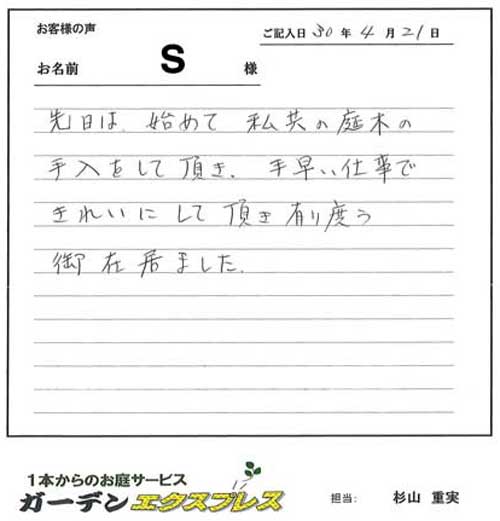 お客様の声
ご記入日 30 年 4 月 21 日
お名前 S 様
先日は、始めて 私共の庭木の
手入をして頂き、手早い仕事で
きれいにして頂き有り度う
御在居ました。
1本からのお庭サービス
ガーデンエクスプレス
担当: 杉山 重実